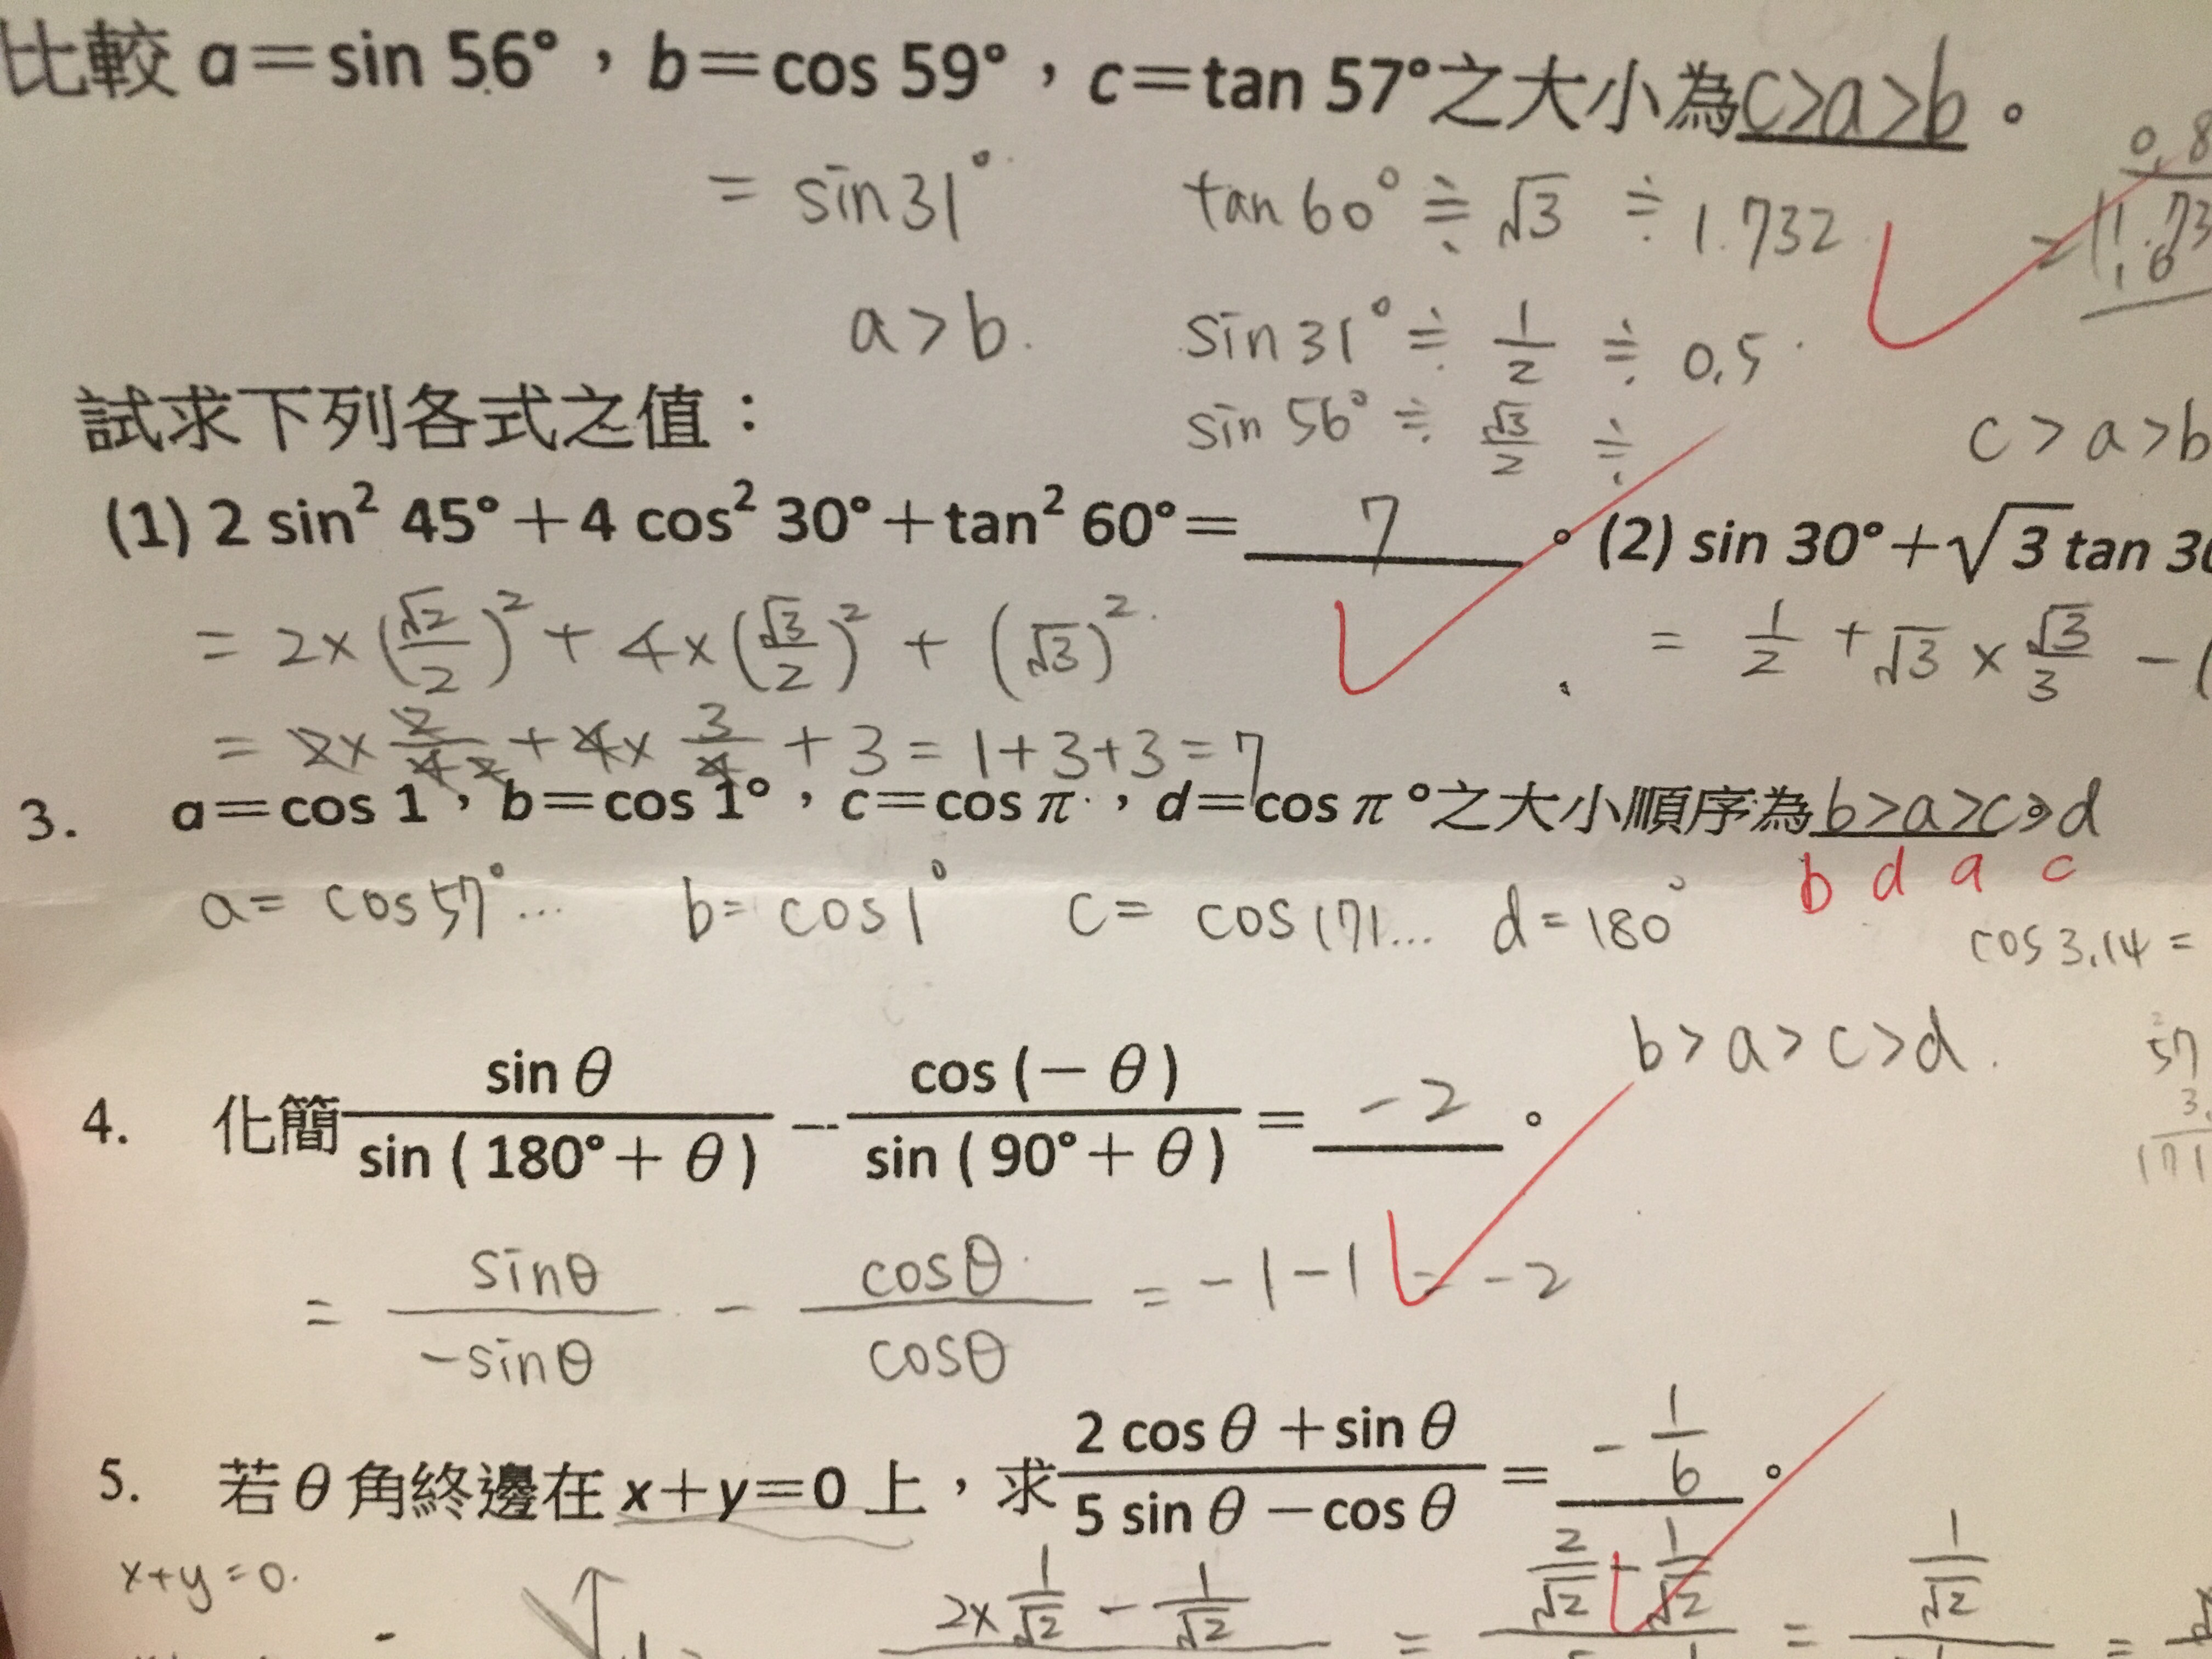 比較 a=sin 56°，b=cos 59°，c=tan 57°之大小為c>a>b。
= sin31° tan60° ≒ √3 ≒ 1.732
a>b. sin31° ≒ 1/2 ≒ 0.5
sin56° ≒ √3/2 ≒
c>a>b
試求下列各式之值：
(1) 2 sin² 45°+4 cos² 30°+tan² 60°= 7 。(2) sin 30°+√3 tan
= 2×(√2/2)²+4×(√3/2)²+(√3)² = 1/2+√3×√3/3 - (
= 2×2/4 2+4×3/4+3=1+3+3=7
3. a=cos 1，b=cos 1°，c=cos π，d=cos π°之大小順序為b>a>c>d。
b d a c
a= cos57°... b= cos1° c= cos171... d=180° cos3.14=
b>a>c>d.
57
3.
171
4. 化簡 sin θ/sin (180°+ θ) - cos (- θ)/sin (90°+ θ) = -2 。
= sinθ/-sinθ - cosθ/cosθ = -1-1=-2
5. 若 θ 角終邊在 x+y=0 上，求 2 cos θ +sin θ/5 sin θ -cos θ = -1/6 。
x+y=0.
2×1/√2 - 1/√2 = 2/√2 - 1/√2 = 1/√2 =